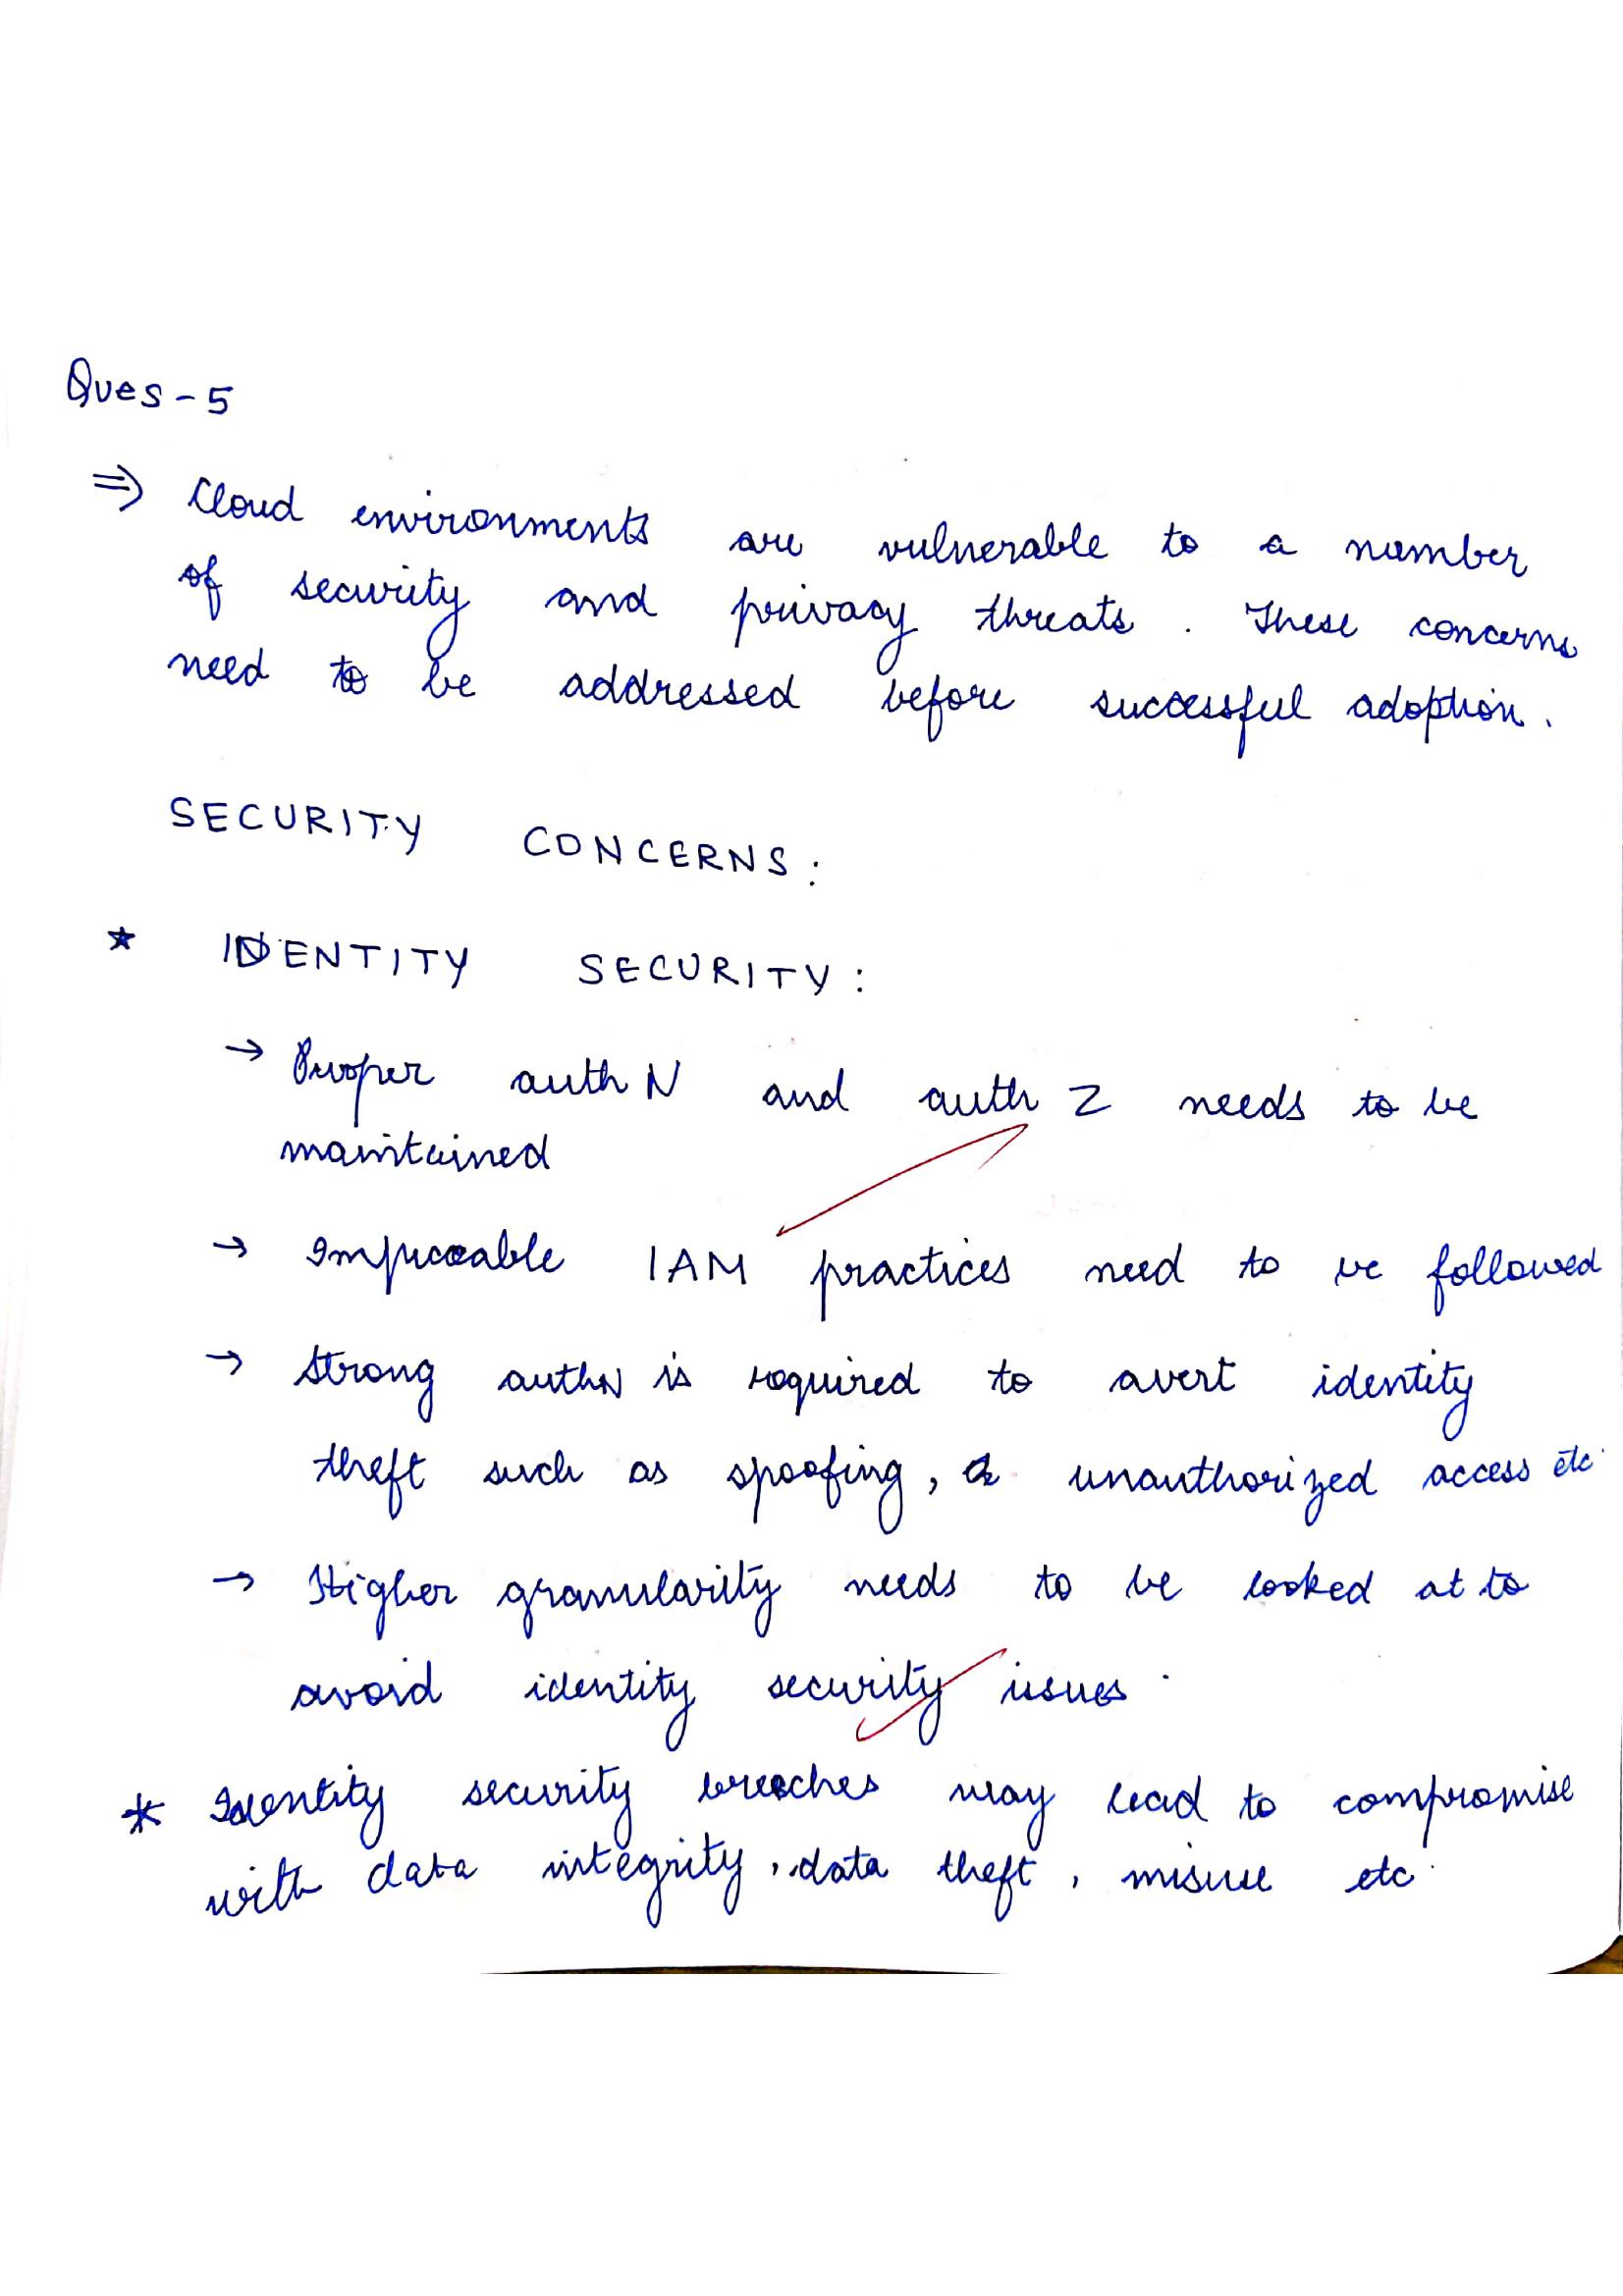 Ques - 5
⇒ Cloud environments are vulnerable to a number
of security and privacy threats. These concerns
need to be addressed before successful adoption.
SECURITY CONCERNS:
* IDENTITY SECURITY:
→ Proper authN and authZ needs to be
maintained
→ IAM practices need to be followed
→ Strong authN is required to avert identity
theft such as spoofing, unauthorized access etc.
→ Higher granularity needs to be looked at to
avoid identity security issues.
* Identity security breaches may lead to compromise
with data integrity, data theft, misuse etc.